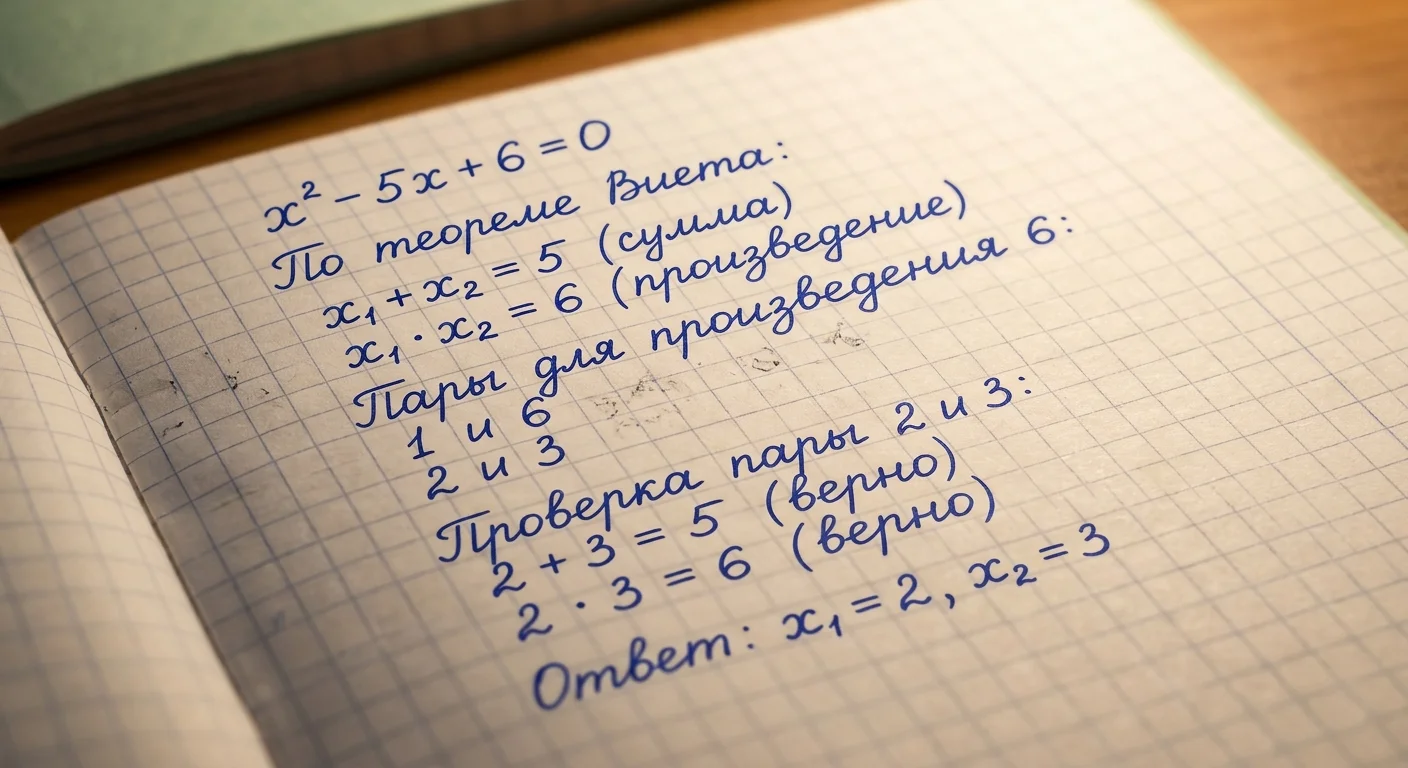 x² − 5x + 6 = 0
По теореме Виета:
x₁ + x₂ = 5 (сумма)
x₁ · x₂ = 6 (произведение)
Пары для произведения 6:
1 и 6
2 и 3
Проверка пары 2 и 3:
2 + 3 = 5 (верно)
2 · 3 = 6 (верно)
Ответ: x₁ = 2, x₂ = 3